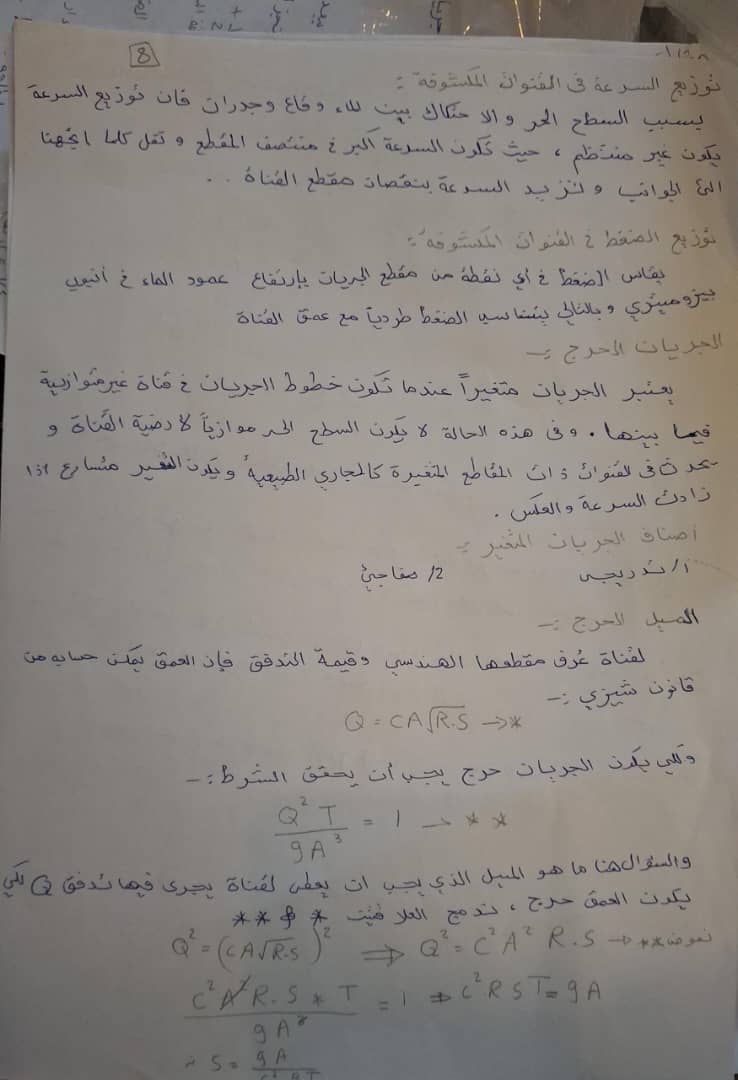 8
توزيع السرعة في القنوات المكشوفة :-
بسبب السطح الحر والاحتكاك بين الماء وقاع وجدران فان توزيع السرعة
يكون غير منتظم ، حيث تكون السرعة أكبر في منتصف المقطع وتقل كلما اتجهنا
الى الجوانب وتزيد السرعة بنقصان مقطع القناة . .
توزيع الضغط في القنوات المكشوفة :-
يقاس الضغط في أي نقطة من مقطع الجريان بإرتفاع عمود الماء في أنبوب
بيزوميتري وبالتالي يتناسب الضغط طردياً مع عمق القناة
الجريان الحرج :-
يعتبر الجريان متغيراً عندما تكون خطوط الجريان في قناة غير متوازية
فيما بينها . وفي هذه الحالة لا يكون السطح الحر موازياً لأرضية القناة و
يحدث في القنوات ذات المقاطع المتغيرة كالمجاري الطبيعية ويكون التغير متسارع اذا
زادت السرعة والعكس .
أصناف الجريان المتغير :-
1/ تدريجي 2/ مفاجئ
الميل الحرج :-
لقناة عُرف مقطعها الهندسي وقيمة التدفق فإن العمق يمكن حسابه من
قانون شيزي :-
Q = CA√R.S → *
ولكي يكون الجريان حرج يجب أن يحقق الشرط :-
Q² T / gA³ = 1 → * *
والسؤال هنا ما هو الميل الذي يجب ان يعطى لقناة يجري فيها تدفق Q لكي
يكون العمق حرج ، ندمج العلاقتين * و **
Q² = (CA√R.S)² ⇒ Q² = C² A² R.S → نعوض **
C² A² R.S * T / gA³ = 1 ⇒ C² R S T = gA
∴ S = gA / C² R T